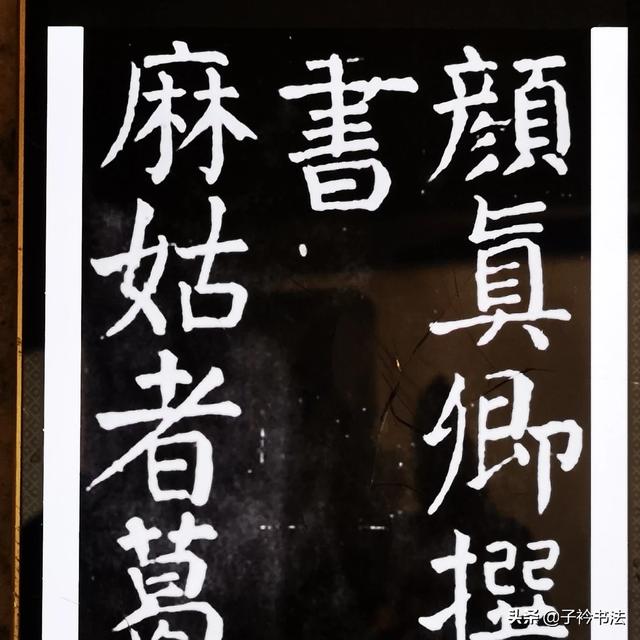 顔眞卿撰
書
麻姑者葛
头条@子衿书法